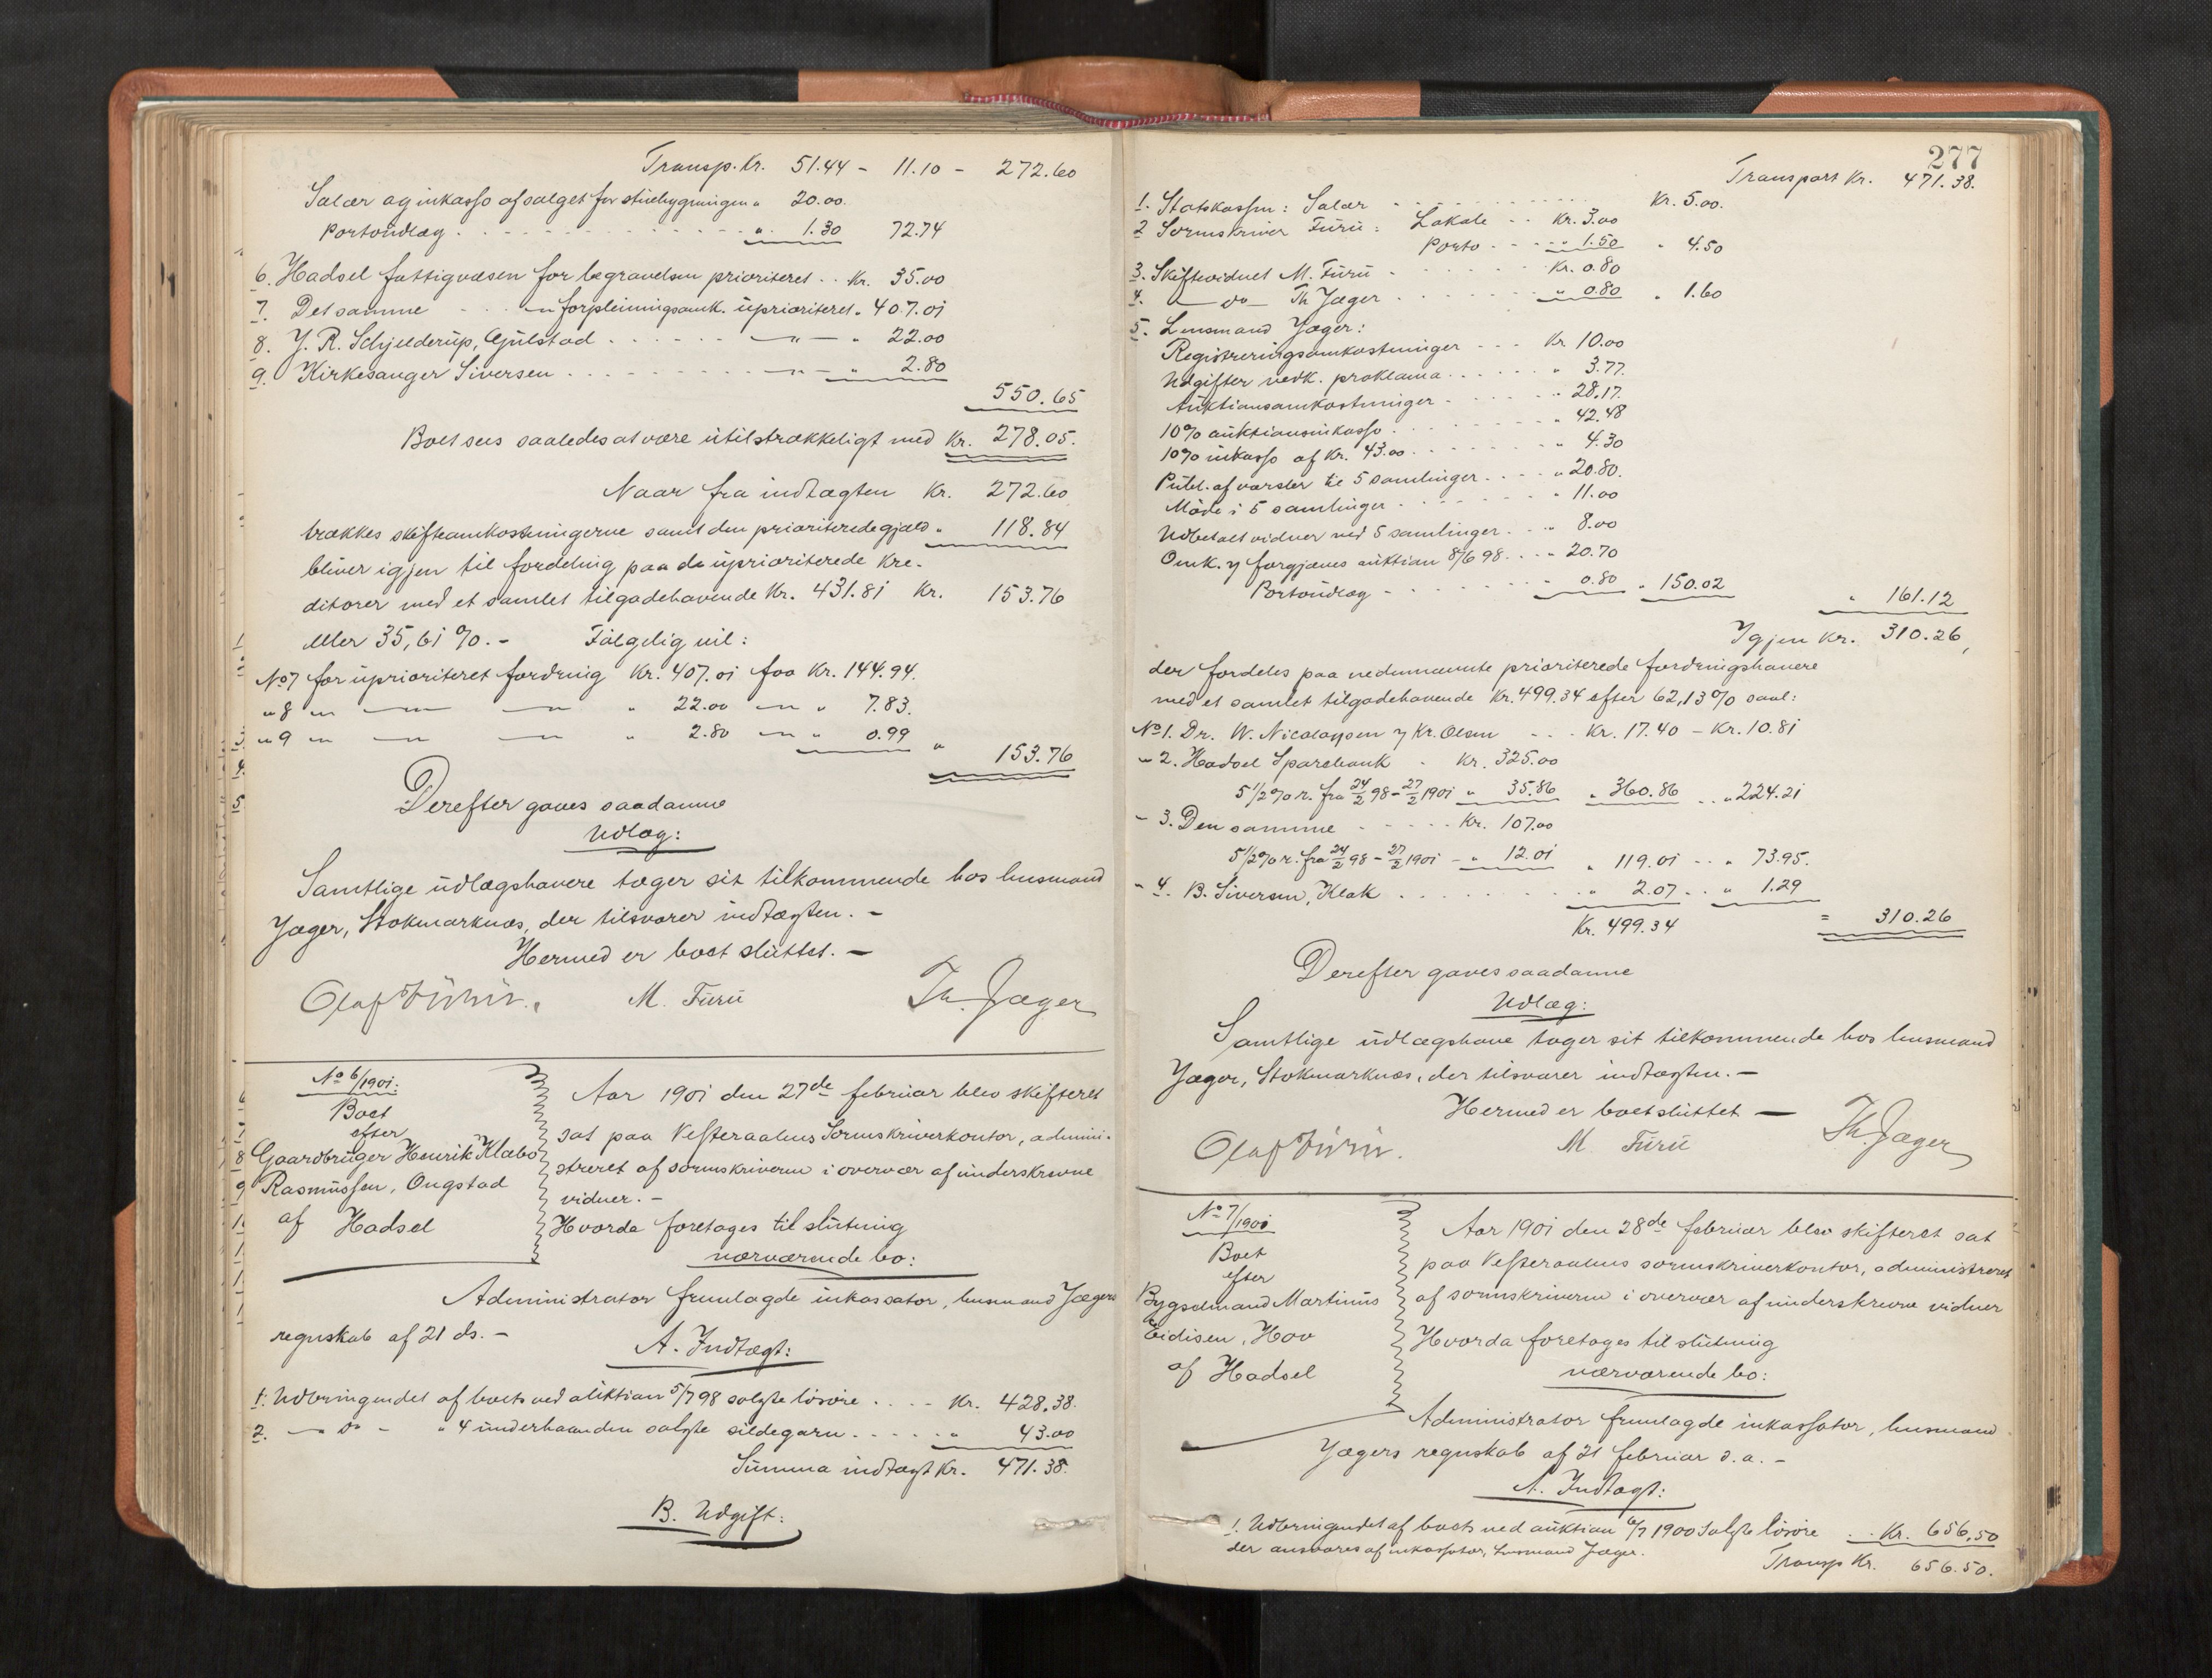 Transp. Kr. 51.44 - 11.10 - 272.60
Salær og inkasso af salget for stuebygningen " 20.00.
Portoudlæg . . . . " 1.30 72.74
6. Hadsel fattigvæsen for begravelsen prioriteret . . Kr. 35.00
7. Det samme - . . -"- forpleiningsomk. uprioriteret . 407.01
8. J. R. Schjelderup, Gjulstad . . . . . . -"- " 22.00
9. Kirkesanger Siversen . . . . . . -"- " 2.80
550.65
Boet sees saaledes at være utilstrækkeligt med Kr. 278.05.
Naar fra indtægten Kr. 272.60
trækkes skifteomkostningerne samt den prioriterede gjæld " 118.84
bliver igjen til fordeling paa de uprioriterede kre-
ditorer med et samlet tilgodehavende Kr. 431.81 Kr. 153.76
eller 35,61 %. - Følgelig vil:
No 7 for uprioriteret fordring Kr. 407.01 faa Kr. 144.94.
" 8 -"- -"- -"- " 22.00 -"- " 7.83.
" 9 -"- -"- -"- " 2.80 -"- " 0.99 " 153.76
Derefter gaves saadanne
Udlæg:
Samtlige udlægshavere tager sit tilkommende hos lensmand
Jæger, Stokmarknæs, der tilsvarer indtægten. -
Hermed er boet sluttet. -
Olaf Furu. M. Furu Th. Jæger
No 6/1901:
Boet
efter
Gaardbruger Henrik Klæbo
Rasmussen, Ongstad
af Hadsel
Aar 1901 den 27de februar blev skifteret
sat paa Vesteraalens Sorenskriverkontor, admini-
streret af sorenskriveren i overvær af underskrevne
vidner. -
Hvorda foretages til slutning
nærværende bo:
Administrator fremlagde inkassator, lensmand Jægers
regnskab af 21 ds. -
A. Indtægt:
1. Udbringendet af boets ved auktion 5/7 98 solgte løsøre . . . . Kr. 428.38.
2. - do - " 4 underhaanden solgte sildegarn . . . . . " 43.00
Summa indtægt Kr. 471.38.
B. Udgift:
277
Transport Kr. 471.38.
1. Statskassen: Salær . . . . . . Kr. 5.00.
2 Sorenskriver Furu: Lokale . . Kr. 3.00
Porto . . . . " 1.50 " 4.50
3. Skiftevidnet M. Furu . . . . . Kr. 0.80
4. - do - Th Jæger . . . . " 0.80 " 1.60
5. Lensmand Jæger:
Registreringsomkostninger . . . Kr 10.00
Udgifter vedk. proklama . . . . " 3.77.
Auktionsomkostninger . . . . " 28.17.
10% auktionsinkasso . . . . " 42.48
10% inkasso af Kr. 43.00 . . . . " 4.30
Publ. af varsler til 5 samlinger . . . " 20.80.
Møde i 5 samlinger . . . . " 11.00
Udbetalt vidner ved 5 samlinger . . " 8.00
Omk. v forgjæves auktion 8/6 98 . . . " 20.70
Portoudlæg . . . . " 0.80 " 150.02 " 161.12
Igjen Kr. 310.26,
der fordeles paa nedennævnte prioriterede fordringshavere
med et samlet tilgodehavende Kr. 499.34 efter 62,13 % saal:
No 1. Dr. W. Nicolaysen v Kr. Olsen . . . Kr. 17.40 - Kr. 10.81
" 2. Hadsel Sparebank . Kr. 325.00
5 1/2 % r. fra 24/2 98 - 27/2 1901 " 35.86 " 360.86 . . " 224.21
- 3. Den samme . . . . . Kr. 107.00
5 1/2 % r. fra 24/2 98 - 27/2 1901 - " 12.01 " 119.01 . . " 73.95.
" 4. B. Siversen, Klak . . . . . . " 2.07 . . " 1.29
Kr. 499.34 = 310.26
Derefter gaves saadanne
Udlæg:
Samtlige udlægshave tager sit tilkommende hos lensmand
Jæger, Stokmarknæs, der tilsvarer indtægten. -
Hermed er boet sluttet -
Olaf Furu. M. Furu Th. Jæger
No 7/1901
Boet
efter
Bygselmand Martinus
Eidisen, Hov
af Hadsel
Aar 1901 den 28de februar blev skifteret sat
paa Vesteraalens sorenskriverkontor, administreret
af sorenskriveren i overvær af underskrevne vidner
Hvorda foretages til slutning
nærværende bo:
Administrator fremlagde inkassator, lensmand
Jægers regnskab af 21 februar d. a. -
A. Indtægt:
1. Udbringendet af boets ved auktion 6/7 1900 solgte løsøre . . Kr. 656,50
der ansvares af inkassator, lensmand Jæger.
Transp Kr. 656.50.